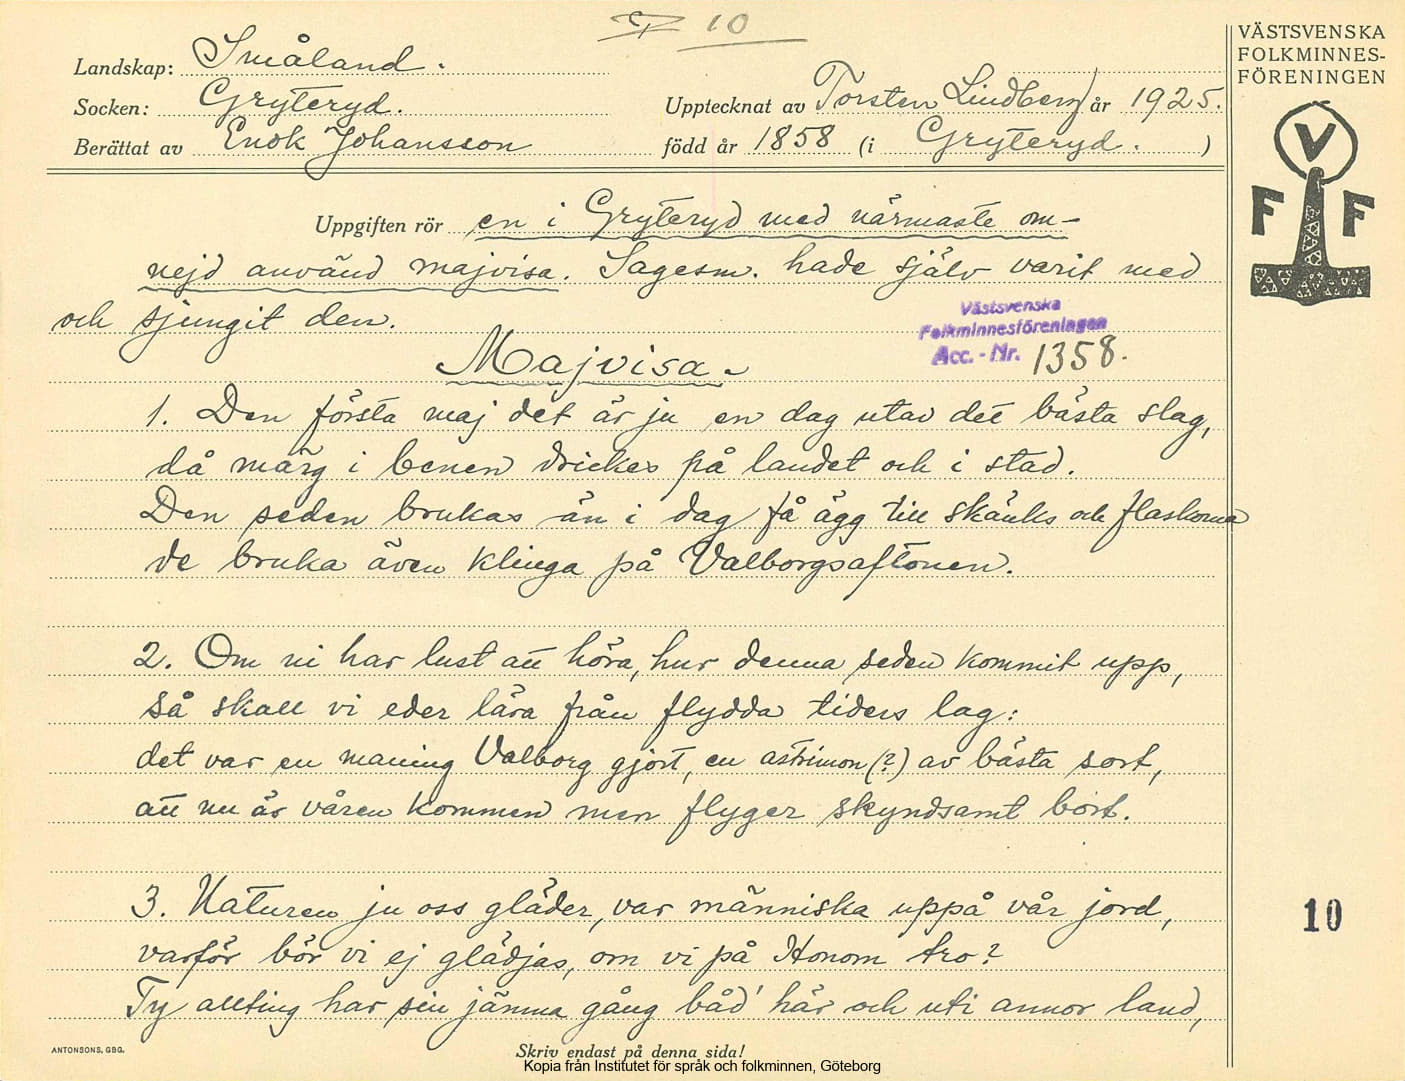 10
VÄSTSVENSKA
FOLKMINNES-
FÖRENINGEN
Landskap: Småland.
Socken: Gryteryd.
Upptecknat av Torsten Lindberg år 1925.
Berättat av Enok Johansson
född år 1858 (i Gryteryd.)
V
F F
Uppgiften rör en i Gryteryd med närmaste om-
nejd använd majvisa. Sagesm. hade själv varit med
och sjungit den.
Västsvenska
Folkminnesföreningen
Acc.-Nr. 1358.
Majvisa.
1. Den första maj det är ju en dag utav det bästa slag,
då märg i benen drickes på landet och i stad.
Den seden brukas än i dag få ägg till skänks och flaskorna
de bruka även klinga på Valborgsaftonen.
2. Om ni har lust att höra, hur denna seden kommit upp,
så skall vi eder lära från flydda tiders lag:
det var en maning Valborg gjort, en astrimon (?) av bästa sort,
att nu är våren kommen men flyger skyndsamt bort.
3. Naturen ju oss gläder, var människa uppå vår jord,
varför bör vi ej glädjas, om vi på Honom tro?
Ty allting har sin jämna gång båd' här och uti annor land,
10
ANTONSONS, GBG.
Skriv endast på denna sida!
Kopia från Institutet för språk och folkminnen, Göteborg